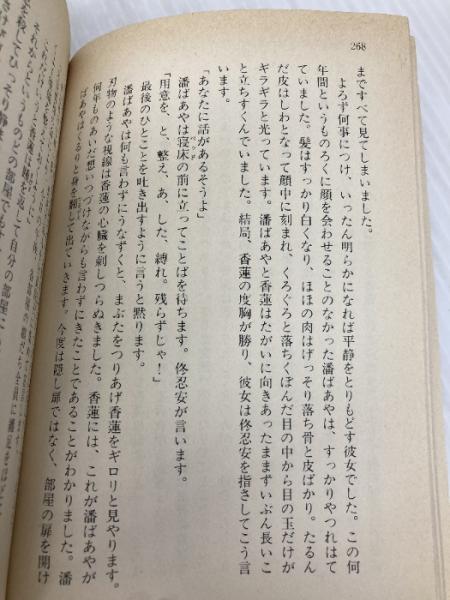 268
まですべて見てしまいました。
よろず何事につけ、いったん明らかになれば平静をとりもどす彼女でした。この何
年間というものろくに顔を会わせることのなかった潘ばあやは、すっかりやつれはて
ていました。髪はすっかり白くなり、ほほの肉はげっそり落ち骨と皮ばかり。たるん
だ皮はしわとなって顔中に刻まれ、くろぐろと落ちくぼんだ目の中から目の玉だけが
ギラギラと光っています。潘ばあやと香蓮はたがいに向きあったままずいぶん長いこ
と立ちすくんでいました。結局、香蓮の度胸が勝り、彼女は佟忍安を指さしてこう言
います。
「あなたに話があるそうよ」
潘ばあやは寝床の前に立ってことばを待ちます。佟忍安が言います。
「用意を、と、整え、あ、した、縛れ。残らずじゃ！」
最後のひとことを吐き出すように言うと黙ります。
潘ばあやは何も言わずにうなずくと、まぶたをつりあげ香蓮をギロリと見やります。
刃物のような視線は香蓮の心臓を刺しつらぬきました。香蓮には、これが潘ばあやが
何年ものあいだ想いつづけながらも言わずにきたことであることがわかりました。潘
ばあやはくるりと身を翻して出ていきます。今度は隠し扉ではなく、部屋の扉を開け